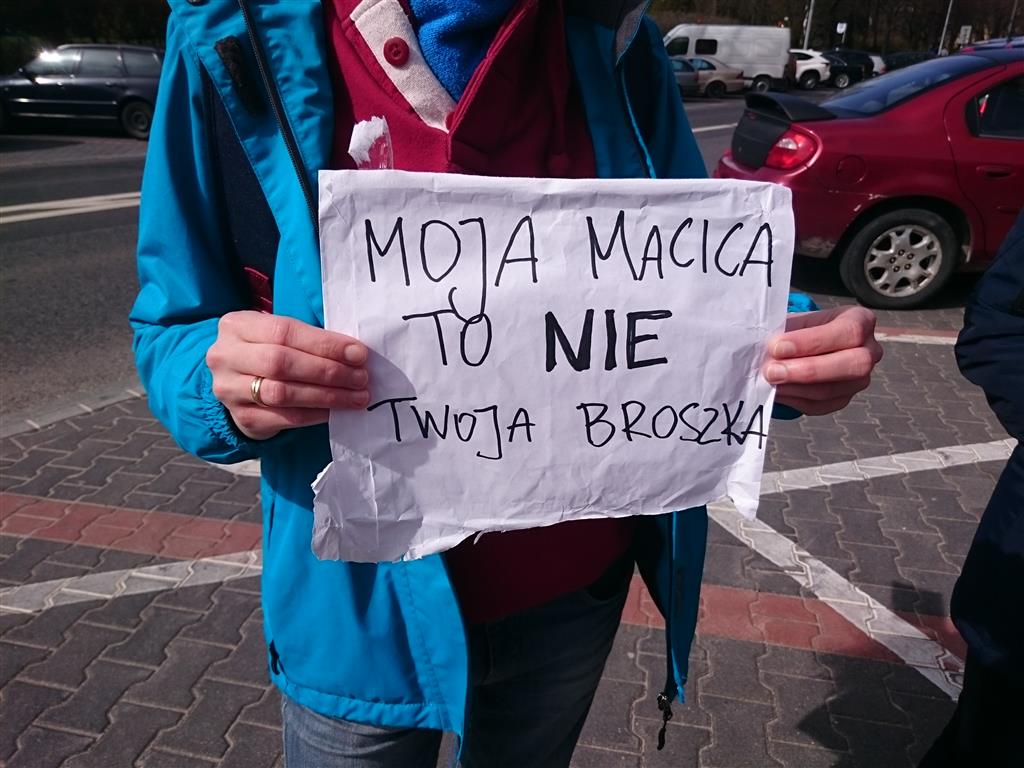 MOJA MACICA
TO NIE
TWOJA BROSZKA